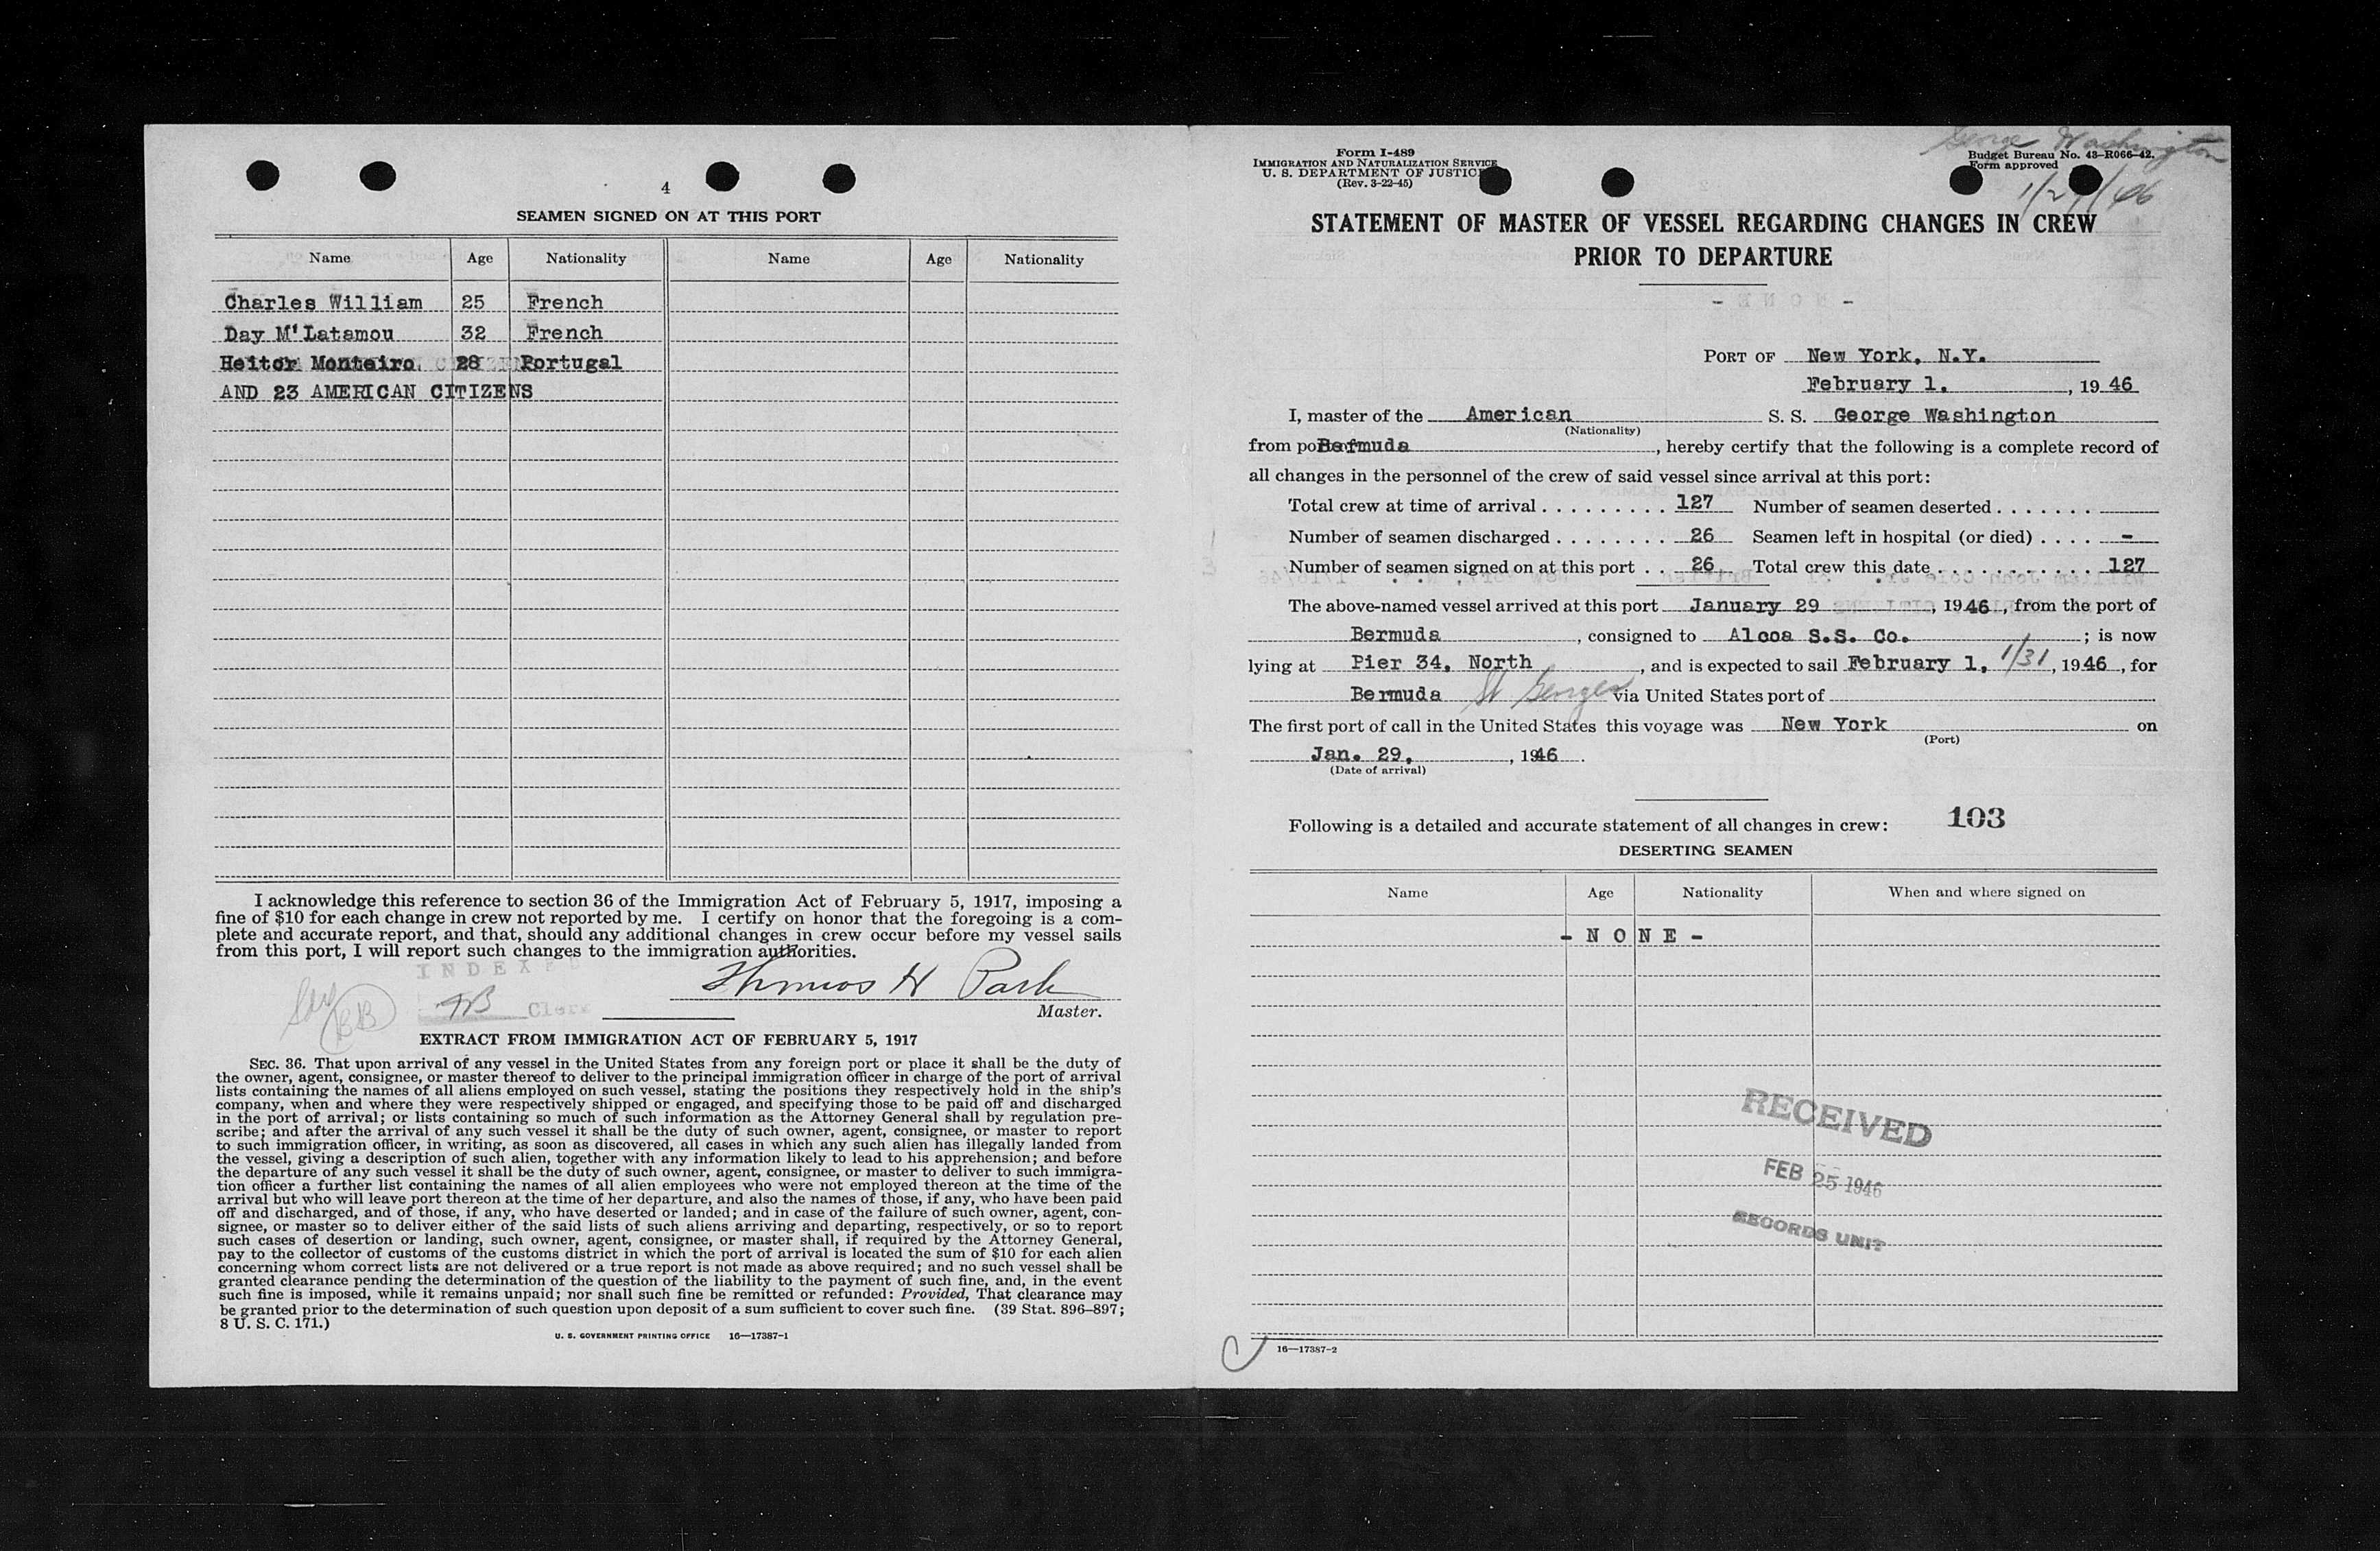 4
SEAMEN SIGNED ON AT THIS PORT
Name Age Nationality Name Age Nationality
Charles William 25 French
Day M'Latamou 32 French
Heitor Monteiro 28 Portugal
AND 23 AMERICAN CITIZENS
I acknowledge this reference to section 36 of the Immigration Act of February 5, 1917, imposing a
fine of $10 for each change in crew not reported by me. I certify on honor that the foregoing is a com-
plete and accurate report, and that, should any additional changes in crew occur before my vessel sails
from this port, I will report such changes to the immigration authorities.
INDEXED
Thomas H Park
BB
Clerk
Master.
EXTRACT FROM IMMIGRATION ACT OF FEBRUARY 5, 1917
SEC. 36. That upon arrival of any vessel in the United States from any foreign port or place it shall be the duty of
the owner, agent, consignee, or master thereof to deliver to the principal immigration officer in charge of the port of arrival
lists containing the names of all aliens employed on such vessel, stating the positions they respectively hold in the ship's
company, when and where they were respectively shipped or engaged, and specifying those to be paid off and discharged
in the port of arrival; or lists containing so much of such information as the Attorney General shall by regulation pre-
scribe; and after the arrival of any such vessel it shall be the duty of such owner, agent, consignee, or master to report
to such immigration officer, in writing, as soon as discovered, all cases in which any such alien has illegally landed from
the vessel, giving a description of such alien, together with any information likely to lead to his apprehension; and before
the departure of any such vessel it shall be the duty of such owner, agent, consignee, or master to deliver to such immigra-
tion officer a further list containing the names of all alien employees who were not employed thereon at the time of the
arrival but who will leave port thereon at the time of her departure, and also the names of those, if any, who have been paid
off and discharged, and of those, if any, who have deserted or landed; and in case of the failure of such owner, agent, con-
signee, or master so to deliver either of the said lists of such aliens arriving and departing, respectively, or so to report
such cases of desertion or landing, such owner, agent, consignee, or master shall, if required by the Attorney General,
pay to the collector of customs of the customs district in which the port of arrival is located the sum of $10 for each alien
concerning whom correct lists are not delivered or a true report is not made as above required; and no such vessel shall be
granted clearance pending the determination of the question of the liability to the payment of such fine, and, in the event
such fine is imposed, while it remains unpaid; nor shall such fine be remitted or refunded: Provided, That clearance may
be granted prior to the determination of such question upon deposit of a sum sufficient to cover such fine. (39 Stat. 896–897;
8 U. S. C. 171.)
U. S. GOVERNMENT PRINTING OFFICE 16—17387-1
George Washington
Form I-489
IMMIGRATION AND NATURALIZATION SERVICE
U. S. DEPARTMENT OF JUSTICE
(Rev. 3-22-45)
Budget Bureau No. 43–R066–42.
Form approved
STATEMENT OF MASTER OF VESSEL REGARDING CHANGES IN CREW
PRIOR TO DEPARTURE
PORT OF New York, N.Y.
February 1, , 19 46
I, master of the American S. S. George Washington
(Nationality)
from port of Bermuda , hereby certify that the following is a complete record of
all changes in the personnel of the crew of said vessel since arrival at this port:
Total crew at time of arrival . . . . . . . . . 127 Number of seamen deserted . . . . . . .
Number of seamen discharged . . . . . . . . 26 Seamen left in hospital (or died) . . . . -
Number of seamen signed on at this port . . 26 Total crew this date . . . . . . . . . . . . 127
The above-named vessel arrived at this port January 29 , 1946 , from the port of
Bermuda , consigned to Alcoa S.S. Co. ; is now
lying at Pier 34, North , and is expected to sail February 1, 1/31 , 1946 , for
Bermuda St Georges via United States port of
The first port of call in the United States this voyage was New York on
(Port)
Jan. 29, , 1946 .
(Date of arrival)
Following is a detailed and accurate statement of all changes in crew: 103
DESERTING SEAMEN
Name Age Nationality When and where signed on
- N O N E -
RECEIVED
FEB 25 1946
RECORDS UNIT
16—17387-2